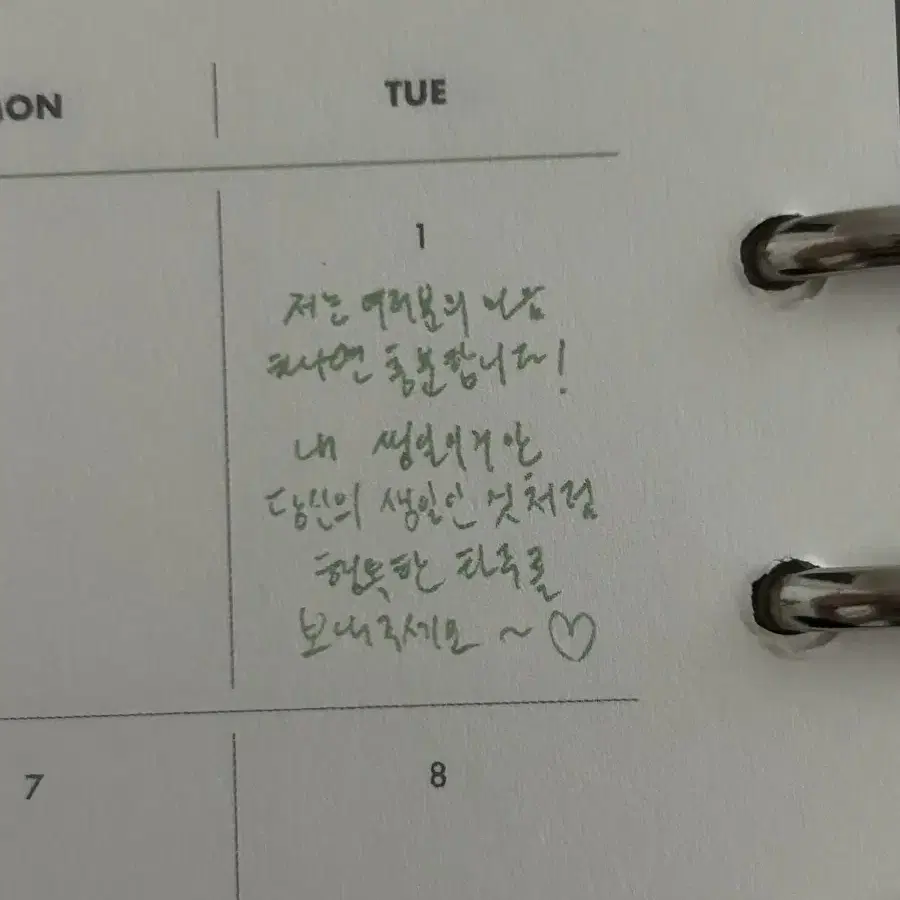 MON TUE
1
저는 여러분의 마음
하나면 충분합니다!
내 생일이지만
당신의 생일인 것처럼
행복한 하루를
보내주세요 ~ ♡
7 8